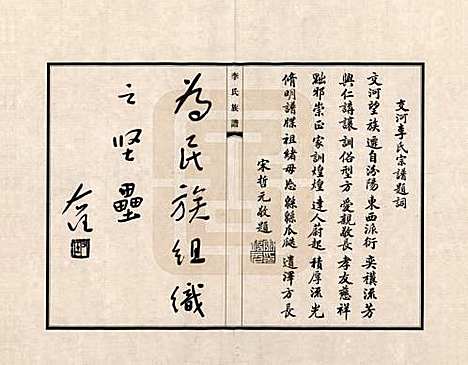 交河李氏宗譜題詞
交河望族 遷自汾陽 東西派衍 奕襈流芳
興仁講讓 訓俗型方 愛親敬長 孝友慈祥
黜邪崇正 家訓煌煌 達人蔚起 積厚流光
脩明譜牒 祖緒毋忘 緜緜瓜瓞 遺澤方長
宋哲元敬題
李氏族譜
為民族組織
之堅壘